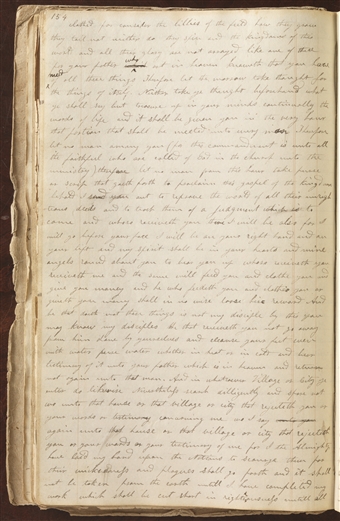 154
clothed for consider the lillies of the field how they grow
they toil not neither do they spin and the kingdoms of this
world and all they glory are not arrayed like one of these
for your father who art in heaven knoweth that you have
need all these things Therefore let the morrow take thought for
the things of itself. Neither take ye thought beforehand what
ye shall say but treasure up in your minds continually the
words of life and it shall be given you in the very hour
that portion that shall be meeted unto every man Therefore
let no man among you (for this commandment is unto all
the faithful who are called of God in the church unto the
ministry) therefore let no man from this hour take purse
or scrip that goeth forth to proclaim this gospel of the kingdom
behold I send you out to reprove the world of all their unrigh
teous deeds and to teach them of a judgment which is to
come and whoso receiveth you there I will be also for I
will go before your face I will be on your right hand and on
your left and my spirit shall be in your hearts and mine
angels round about you to bear you up whoso receiveth you
receiveth me and the same will feed you and clothe you and
give you money and he who feedeth you and clotheth you or
giveth you money shall in no wise loose his reward And
he that doeth not these things is not my disciple by this you
may know my disciples he that receiveth you not go away
from him alone by yourselves and cleanse your feet even
with water pure water whether in heat or in cold and bear
testimony of it unto your father which is in heaven and return
not again unto that man. And in whatsoever village or city ye
enter do likewise nevertheless search diligently and spare not
wo unto that house or that village or city that rejecteth you or
your words or testimony concerning me wo I say
again unto that house or that village or city that rejecteth
you or your words or your testimony of me for I the Almighty
have laid my hand upon the nations to scourge them for
their wickedness and plagues shall go forth and it shall
not be taken from the earth until I have completed my
work which shall be cut short in righteousness until all